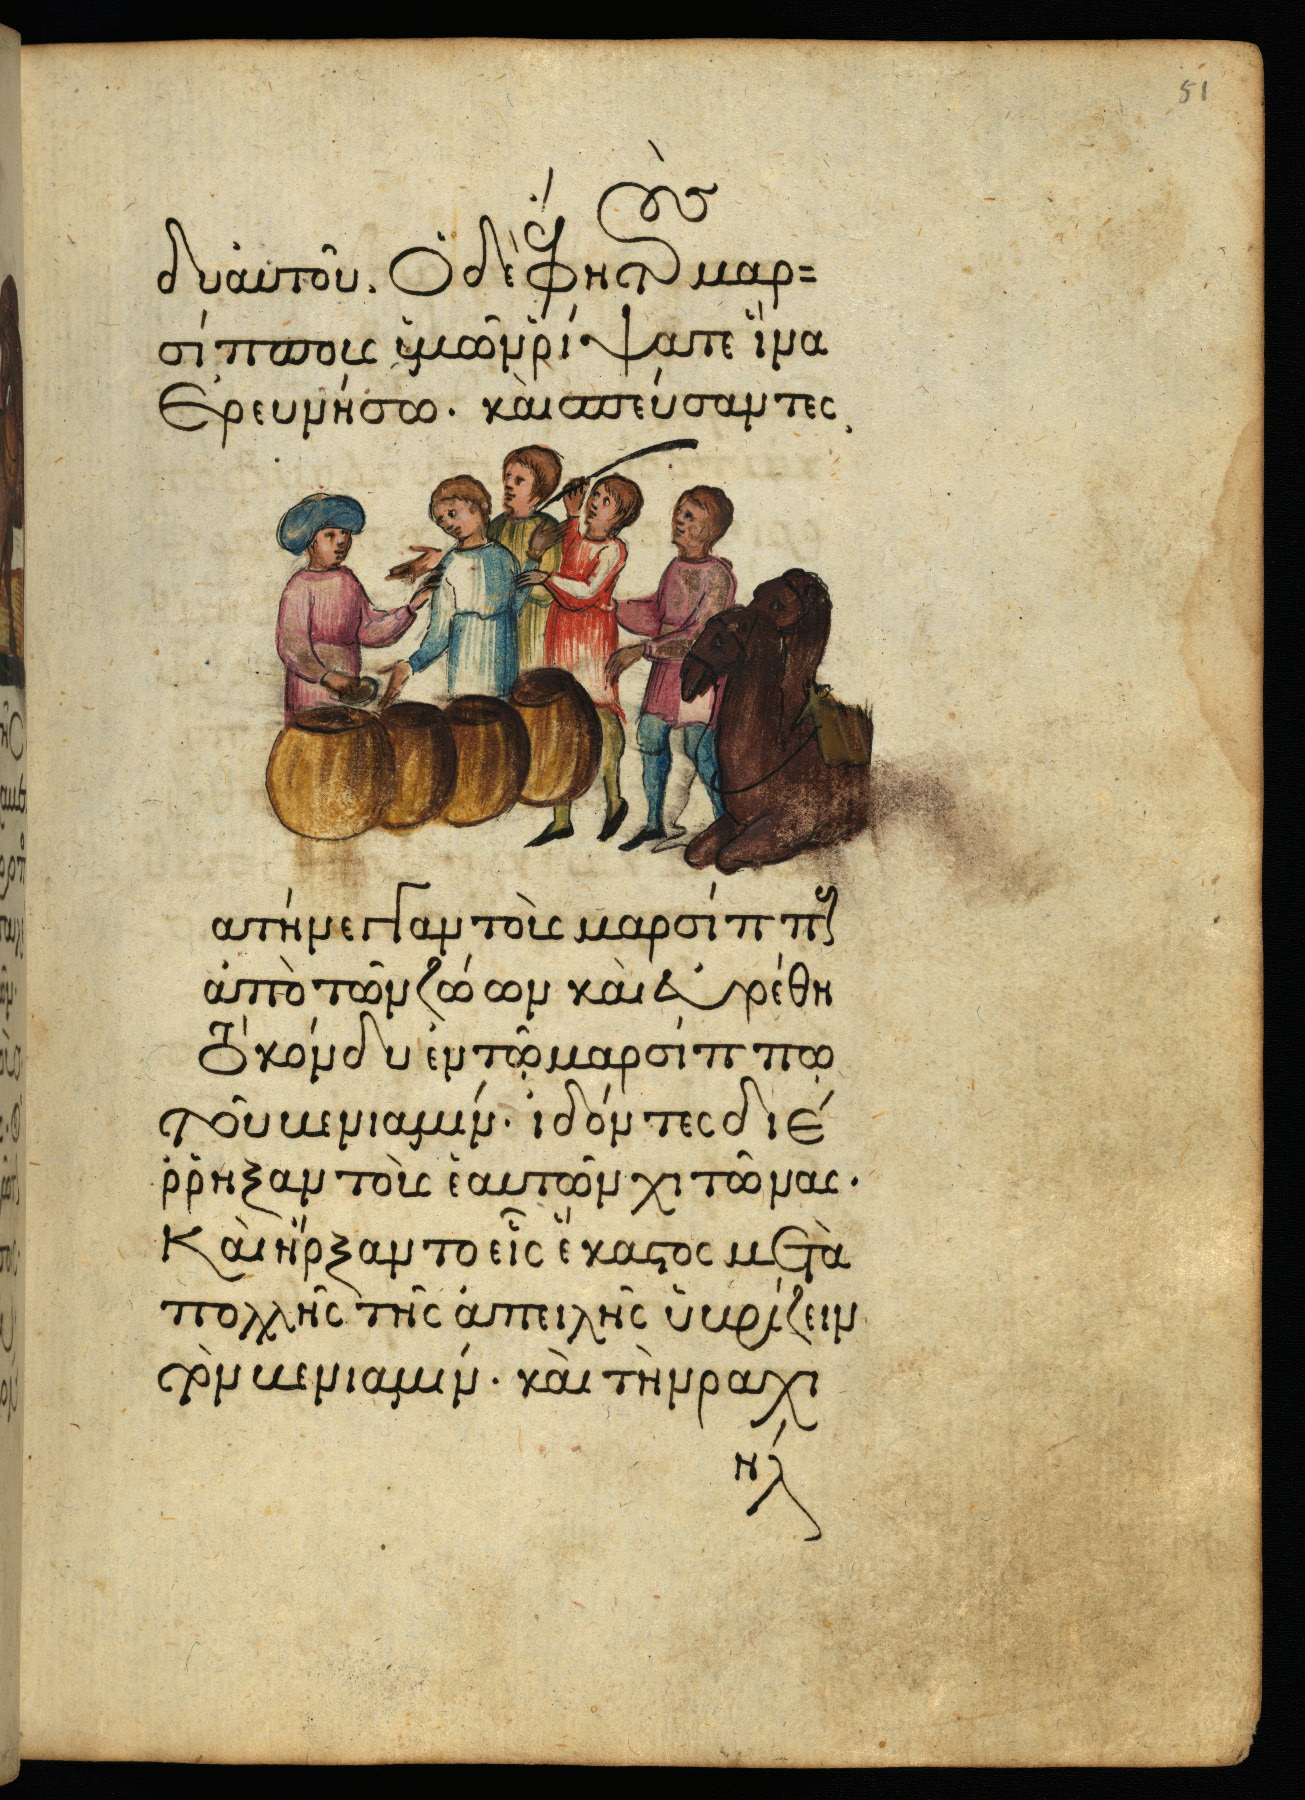 51
δυ αὐτοῦ. Ὁ δὲ ἔφη τοὺς μαρ=
σίππους ὑμῶν ῥίψαπε ἵνα
Ἐρευνήσω. καὶ σπεύσαντες
ἀπήνεγγαν τοὺς μαρσίππους
ἀπὸ τῶν ζώων καὶ εὑρέθη
τὸ κόνδυ ἐν τῷ μαρσίππῳ
τοῦ βενιαμίν. ἰδόντες διέ
ῤῥηξαν τοὺς ἑαυτῶν χιτῶνας.
Καὶ ἤρξαντο εἷς ἕκαστος μετὰ
πολλῆς τῆς ἀπειλῆς ὑβρίζειν
τὸν βενιαμίν. καὶ τὴν ραχι
ήλ